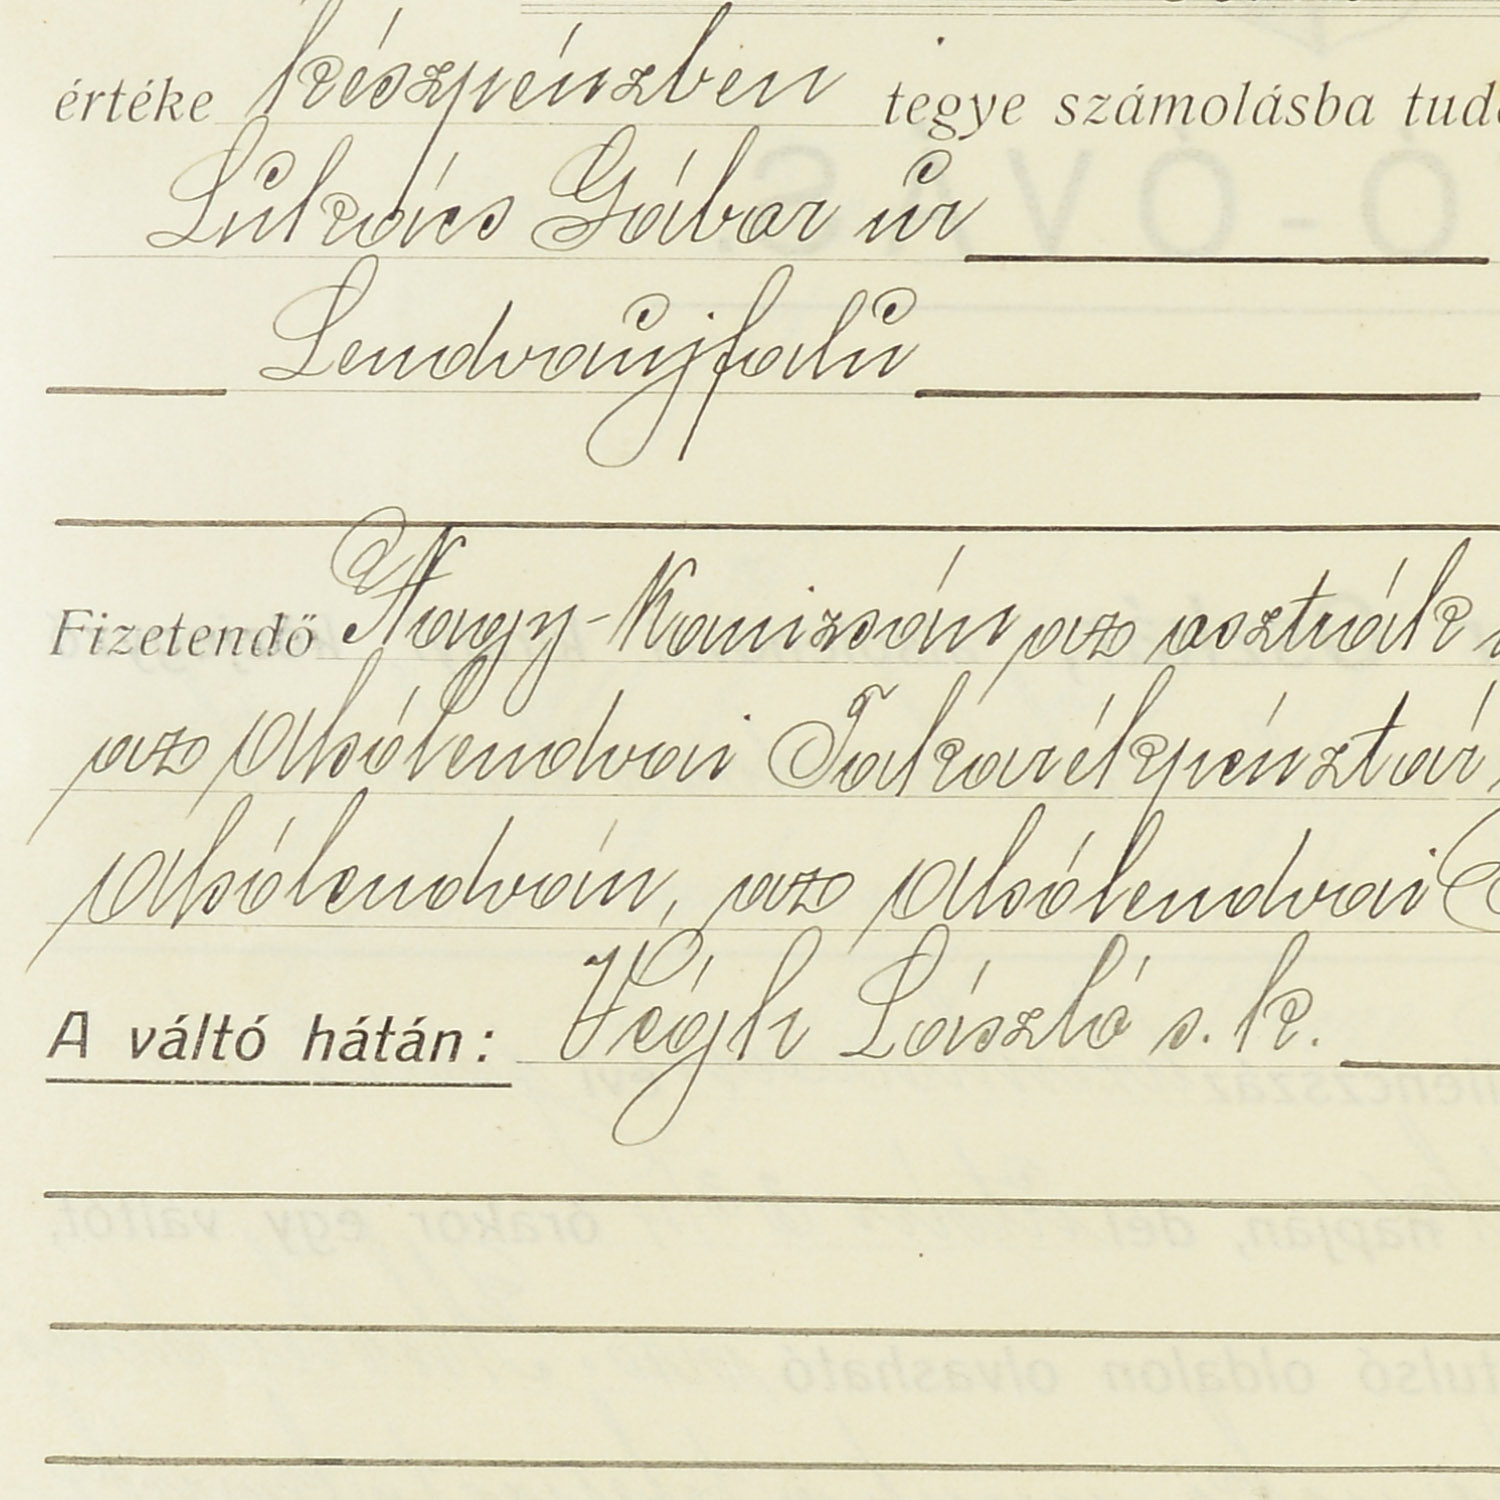 értéke készpénzben tegye számolásba
Lukács Gábor úr
Lendvaujfalu
Fizetendő Nagy-Kanizsán az osztrák
az Alsólendvai Takarékpénztár,
Alsólendván, az Alsólendvai
A váltó hátán: Végh László s. k.